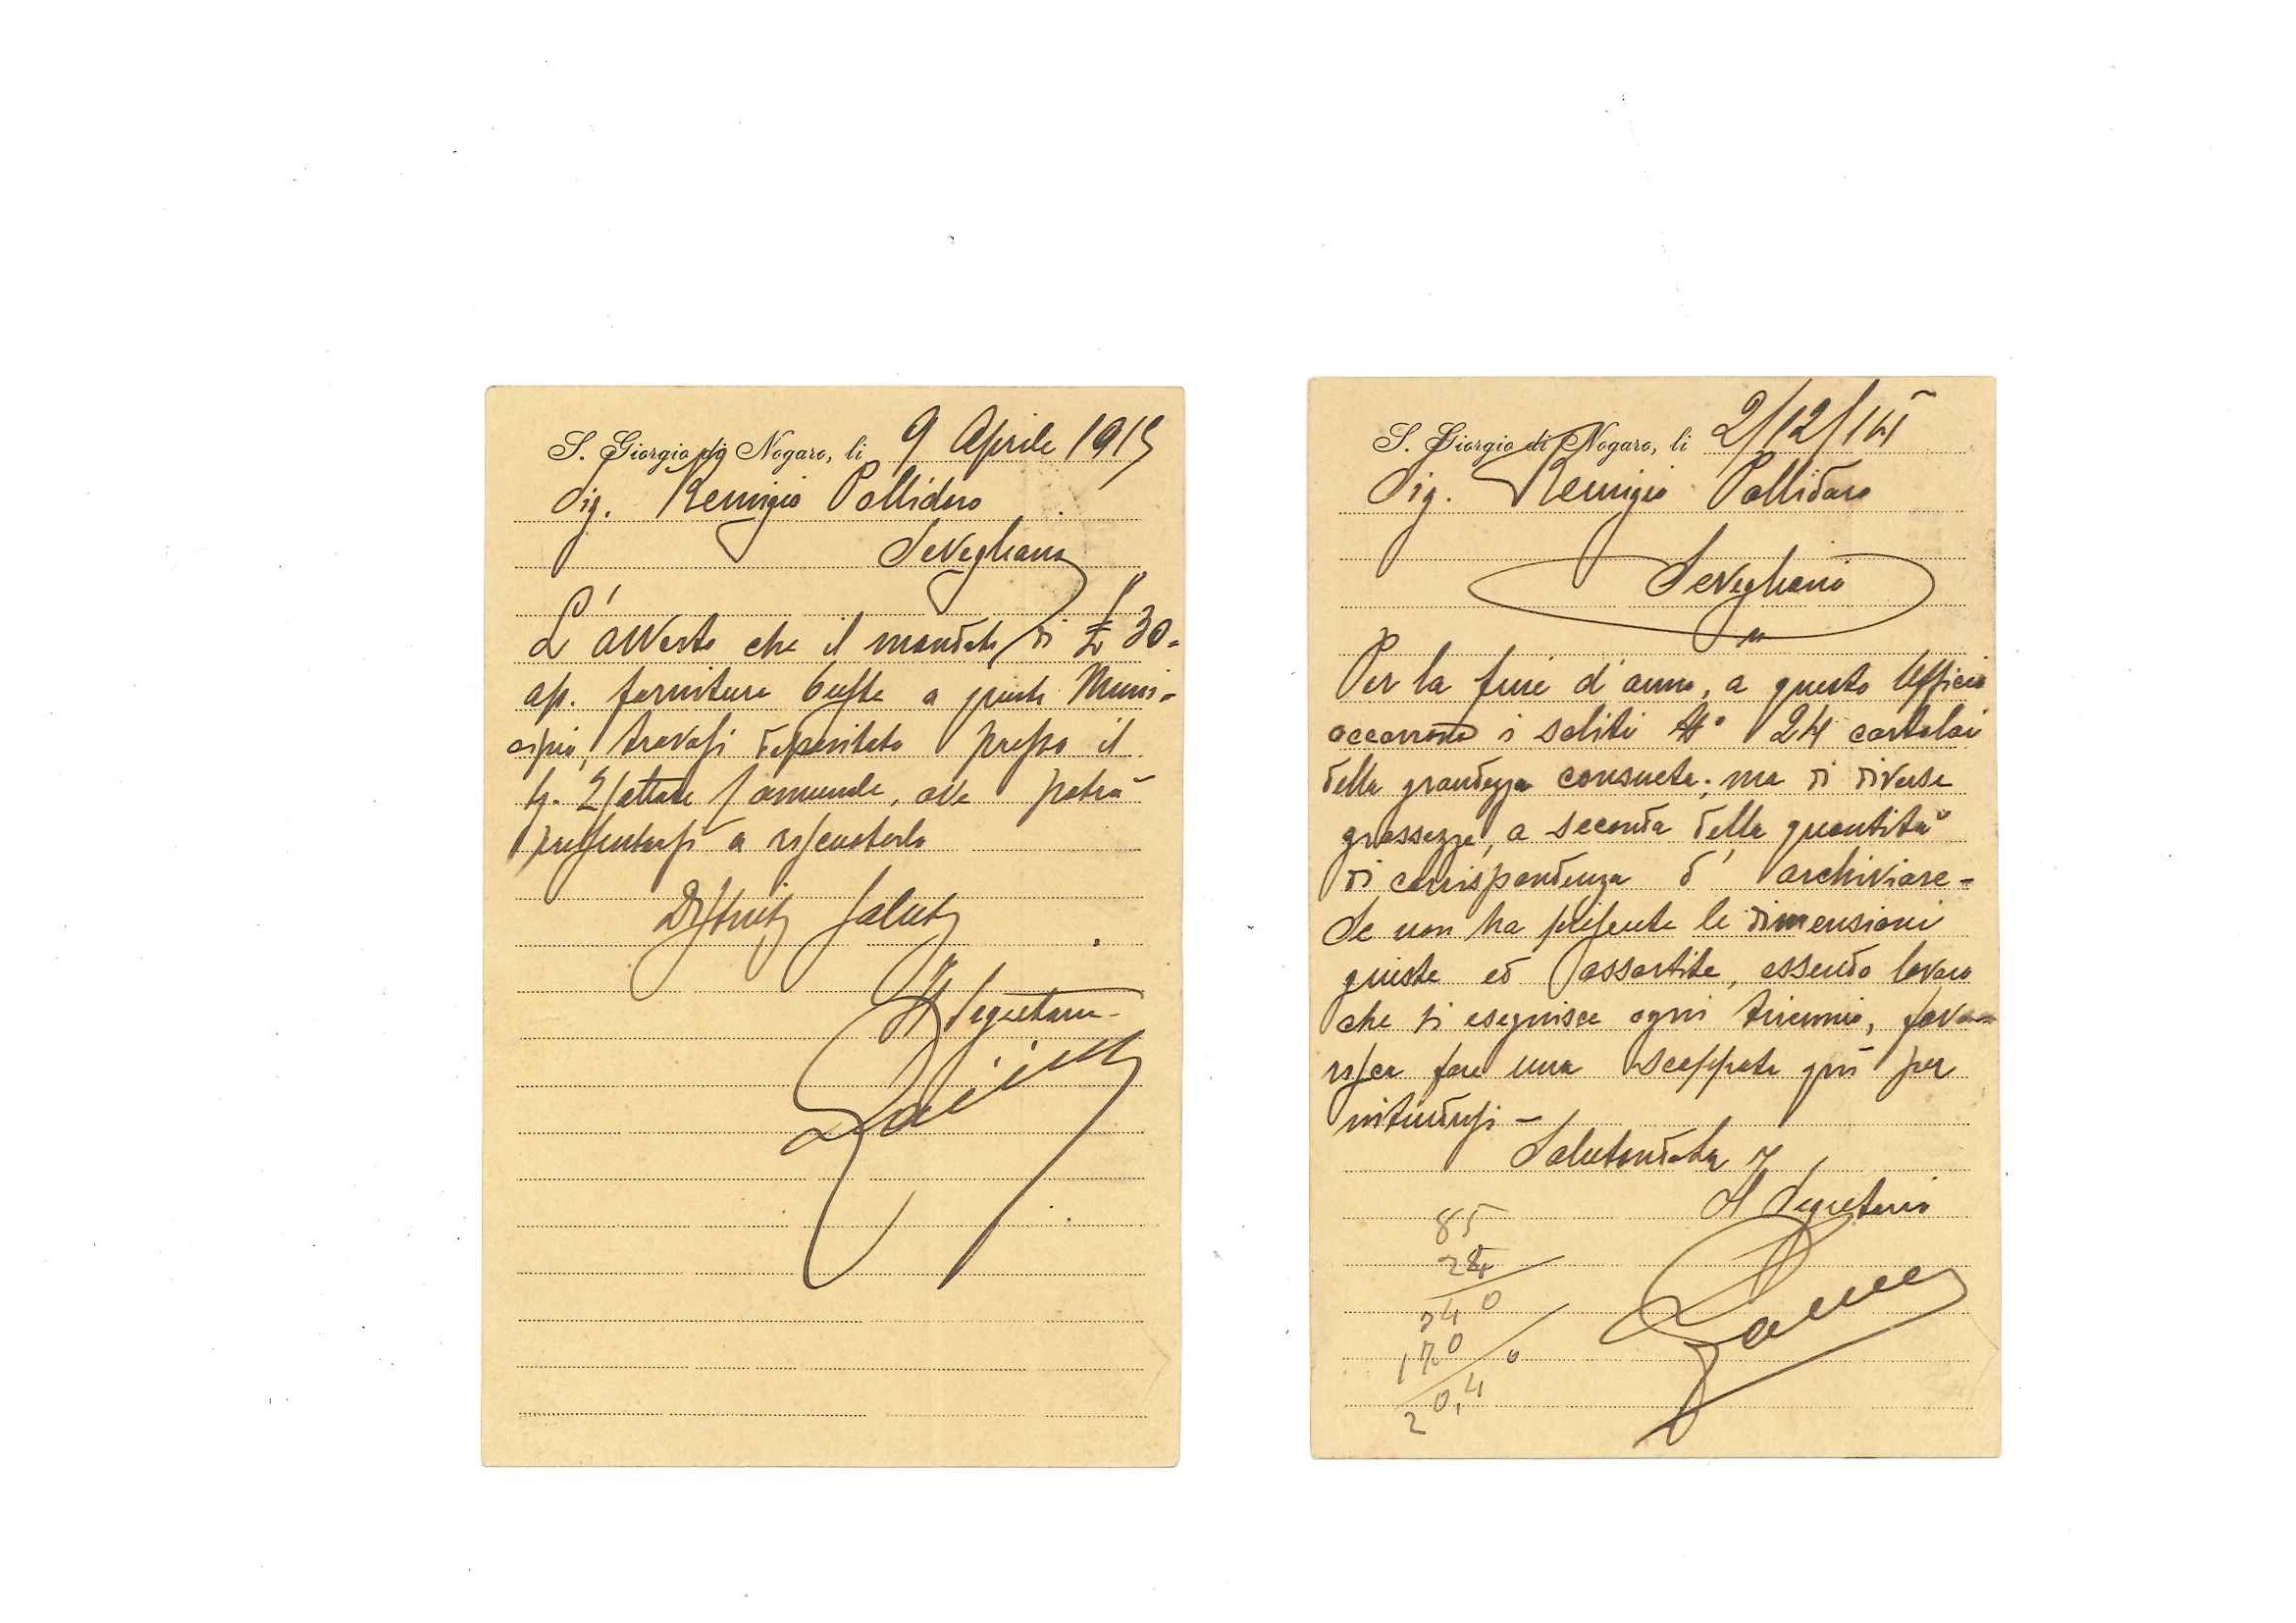 S. Giorgio di Nogaro, li 9 Aprile 1915
Sig. Remigio Pallidoro
Sevegliano
L'avverto che il mandato di £ 30-
ap. forniture buste a questo Muni-
cipio, trovasi depositato presso il
Esattore Comunale, ove potrà
presentarsi a riscuoterlo
Distinti saluti
Il Segretario
S. Giorgio di Nogaro, li 2/12/14
Sig. Remigio Pallidoro
Sevegliano
Per la fine d'anno, a questo Ufficio
occorrono i soliti N° 24 cartolai
della grandezza consueta; ma di diverse
grossezze, a seconda della quantità
di corrispondenza d'archiviare-
Se non ha presente le dimensioni
giuste ed assortite, essendo lavoro
che si eseguisce ogni triennio, favo-
risca fare una scappata qui per
intendersi -
Salutandola
Il Segretario
85
24
340
170
20,40